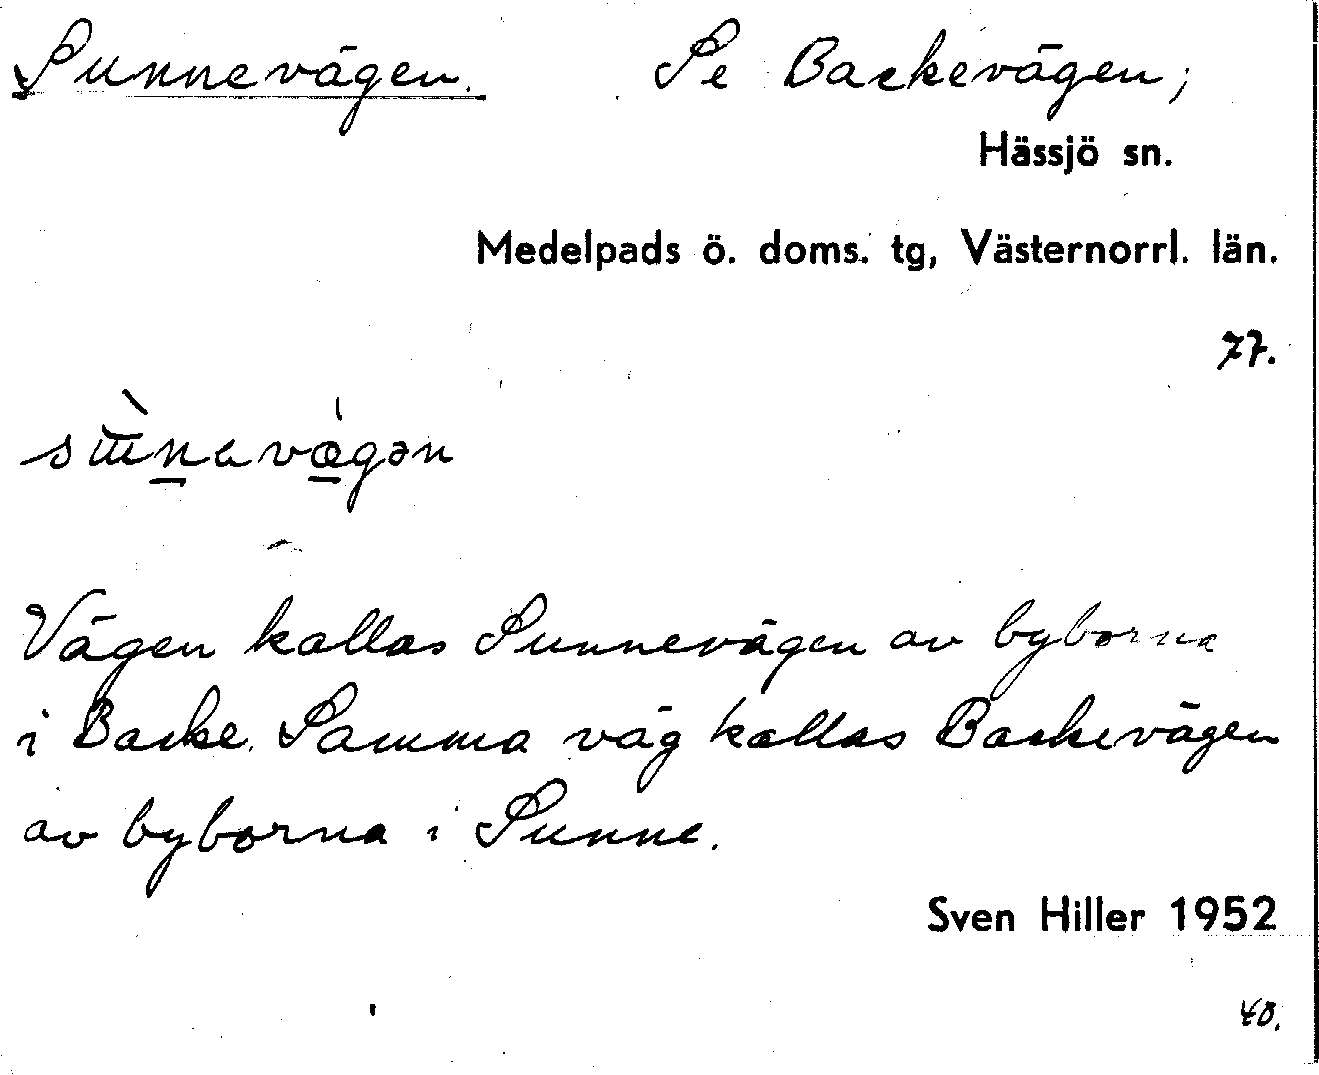 Sunnevägen. Se Backevägen;
Hässjö sn.
Medelpads ö. doms. tg, Västernorrl. län.
77.
Vägen kallas Sunnevägen av byborna
i Backe. Samma väg kallas Backevägen
av byborna i Sunne.
Sven Hiller 1952